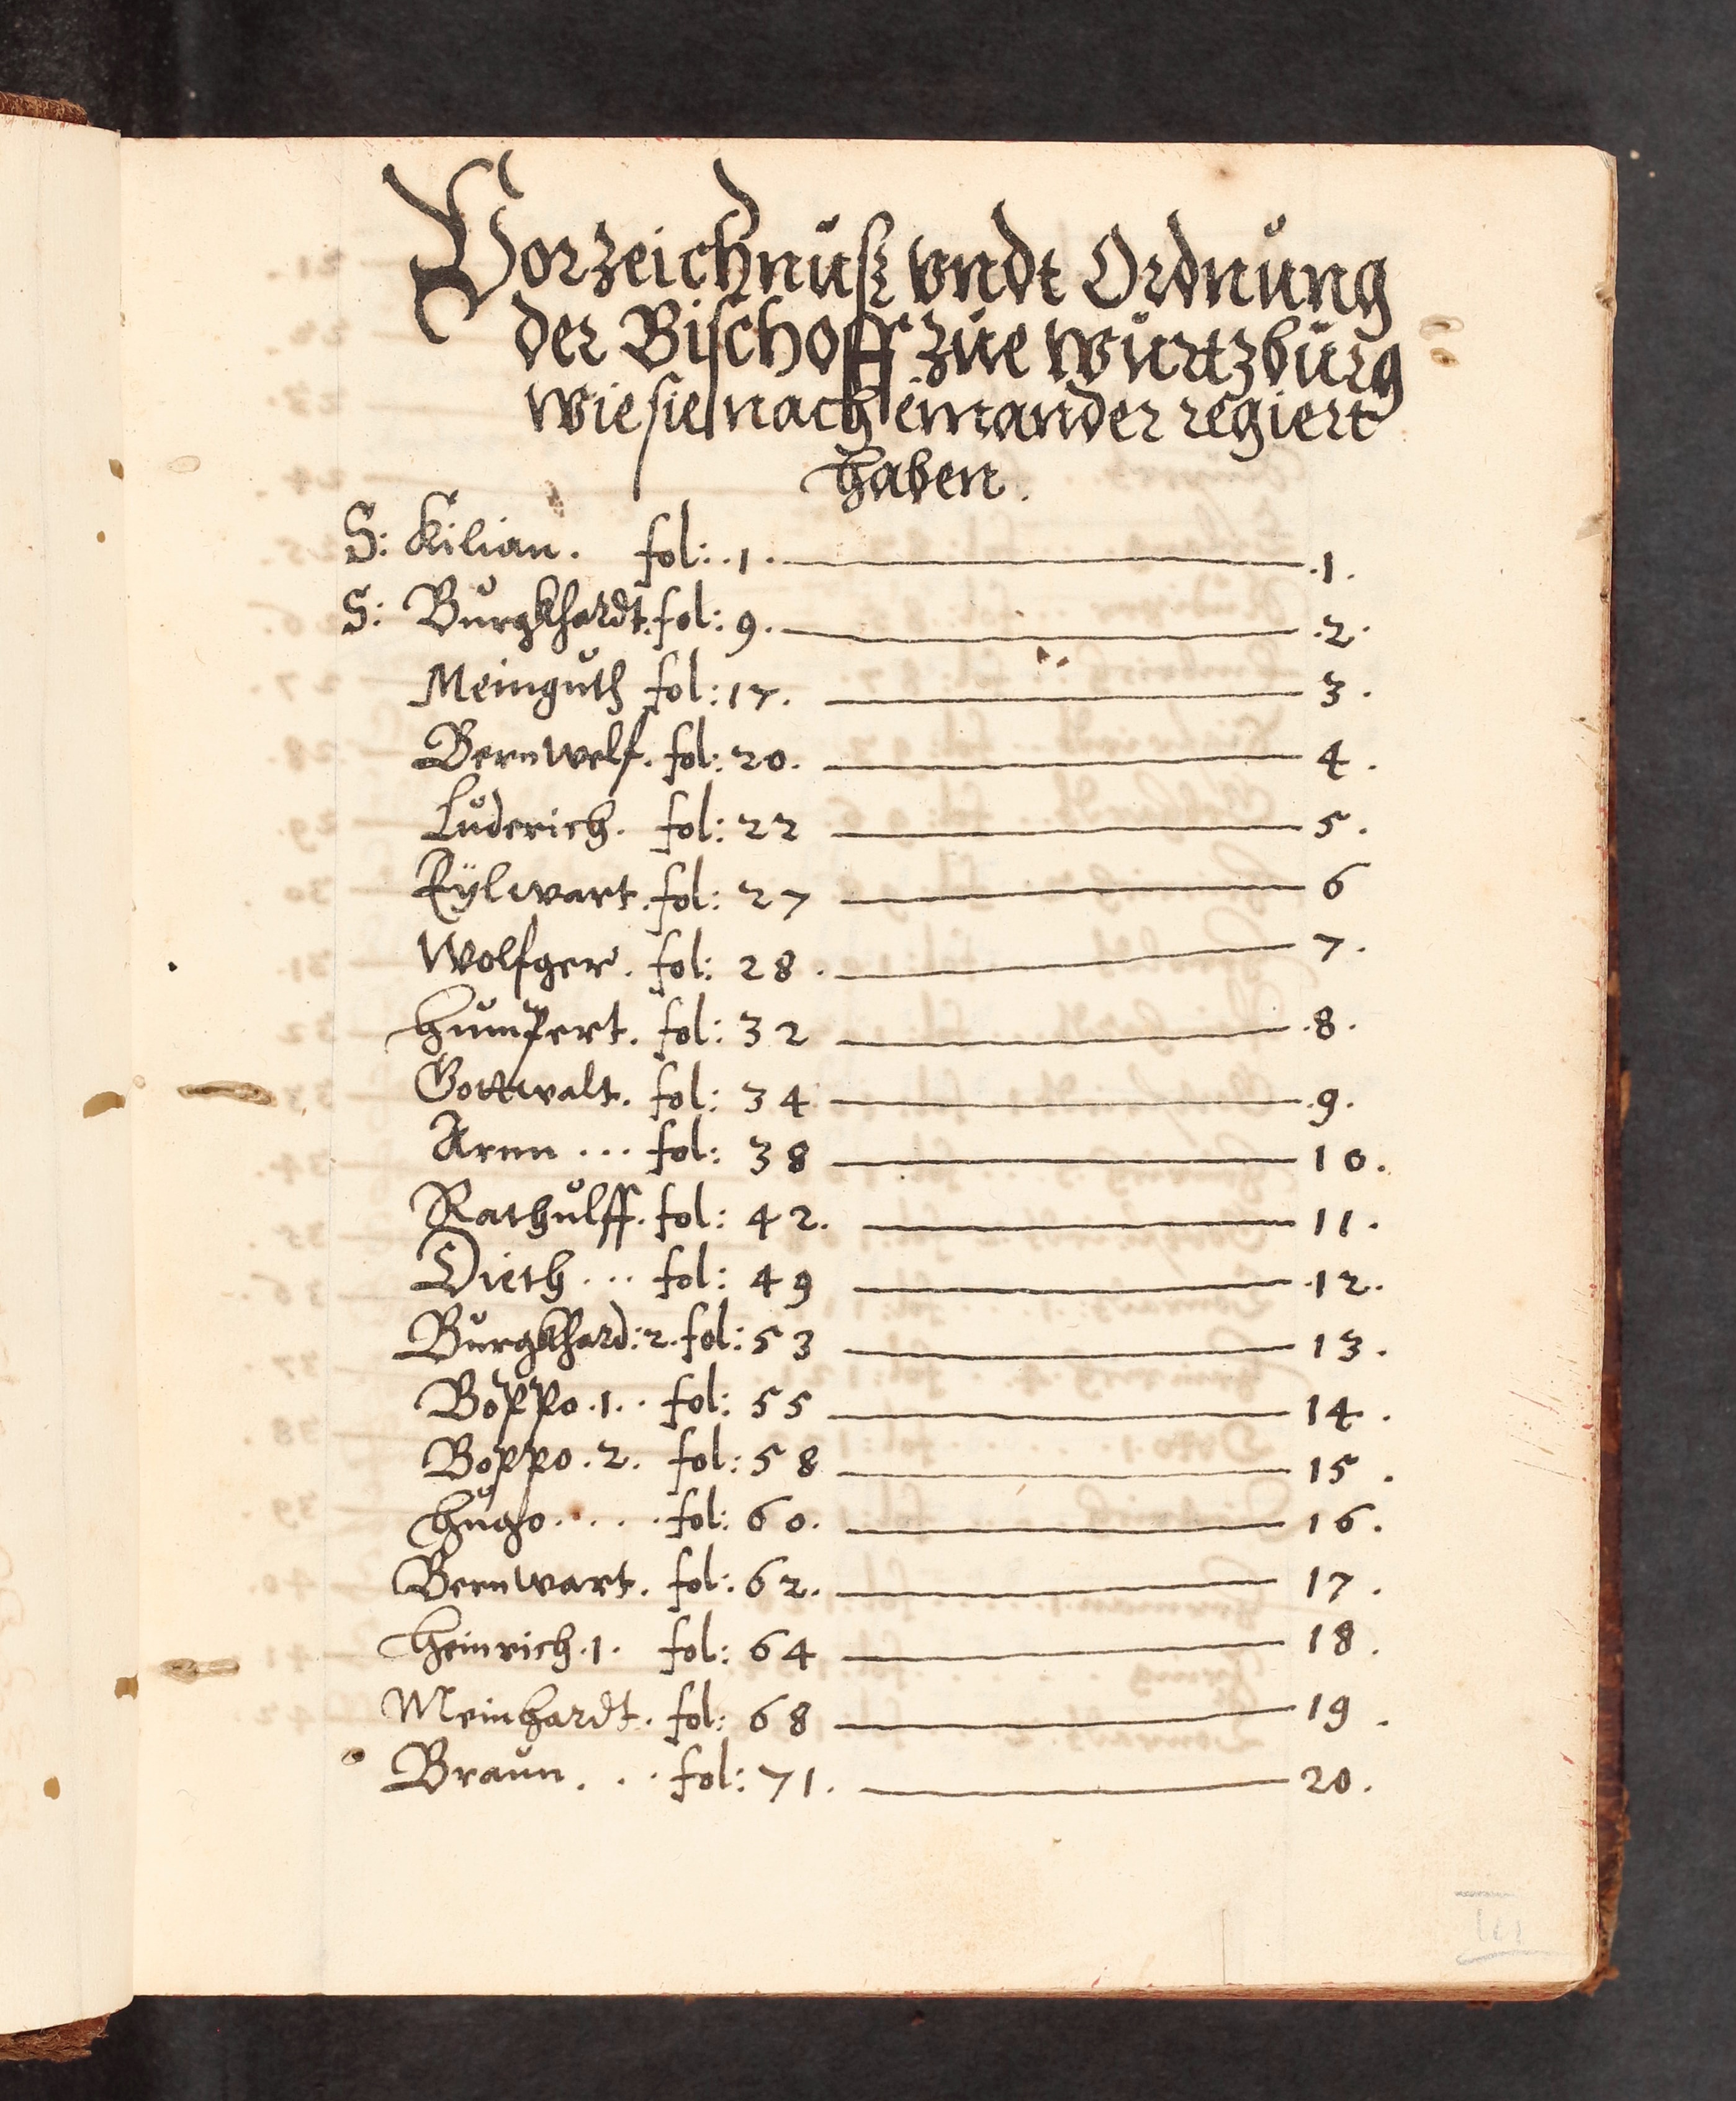 Vorzeichnuß vndt Ordnung
der Bischoff zue wurtzburg
wie sie nach einander regiert
haben.
S: Kilian. fol: .1. .1.
S: Burgkhardt. fol: 9. .2.
Meinguth fol: 17. 3.
Bernwelf. fol: 20. 4.
Luderich. fol: 22 5.
Eÿlwart. fol: 27 6
Wolfger. fol: 28. 7.
Humpert. fol: 32 .8.
Gottwalt. fol: 34 .9.
Arnn ... fol: 38 10.
Rathulff. fol: 42. 11.
Dieth ... fol: 49 .12.
Burgkhard: 2. fol: 53 13.
Boppo .1. . fol: 55 14.
Boppo .2. fol: 58 15.
Hugo ..... fol: 60. 16.
Bernwart. fol: 62. 17.
Heinrich .1. fol: 64 18.
Meinhardt. fol: 68 19.
Braun. .. fol: 71. 20.